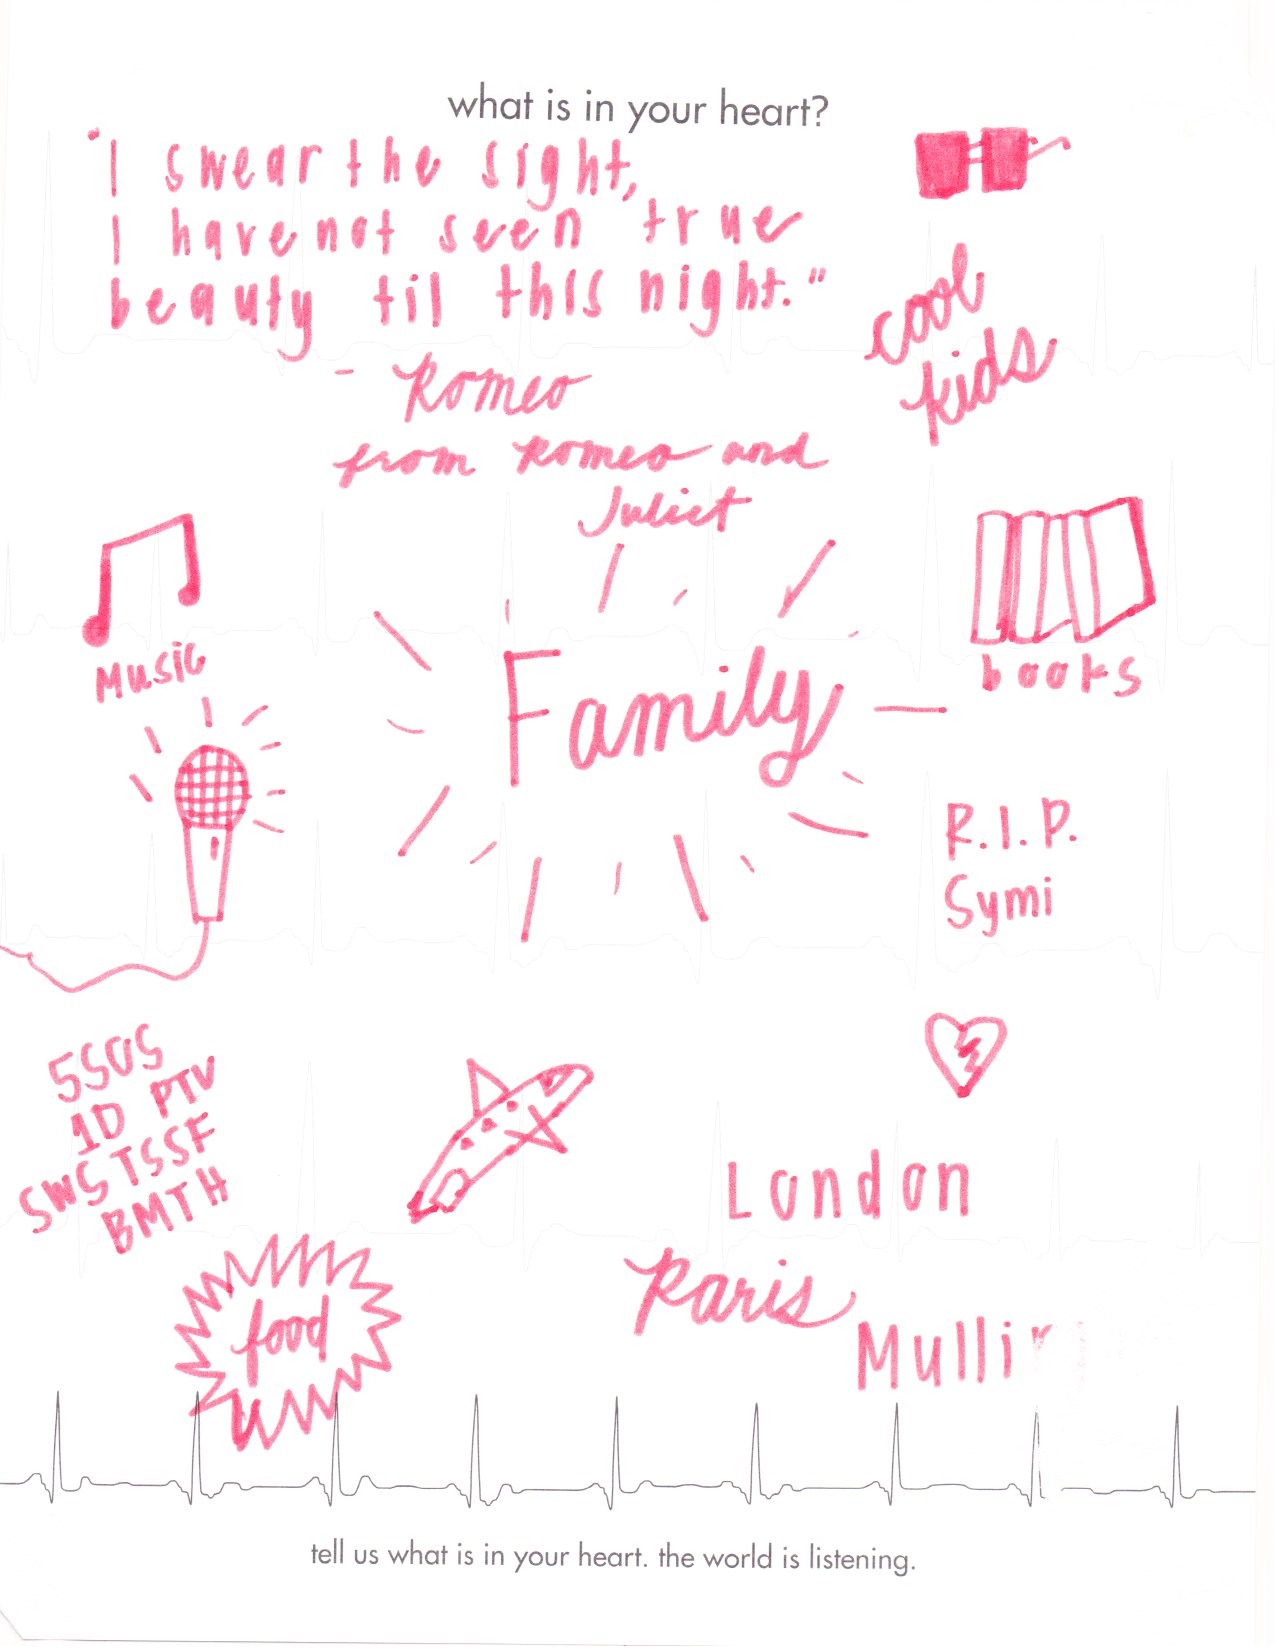 what is in your heart?
"I swear the sight,
I have not seen true
beauty til this night."
- Romeo
from Romeo and
Juliet
cool
kids
Music
books
Family
R.I.P.
Symi
5SOS
1D PTV
SWS TSSF
BMTH
food
London
Paris
tell us what is in your heart. the world is listening.